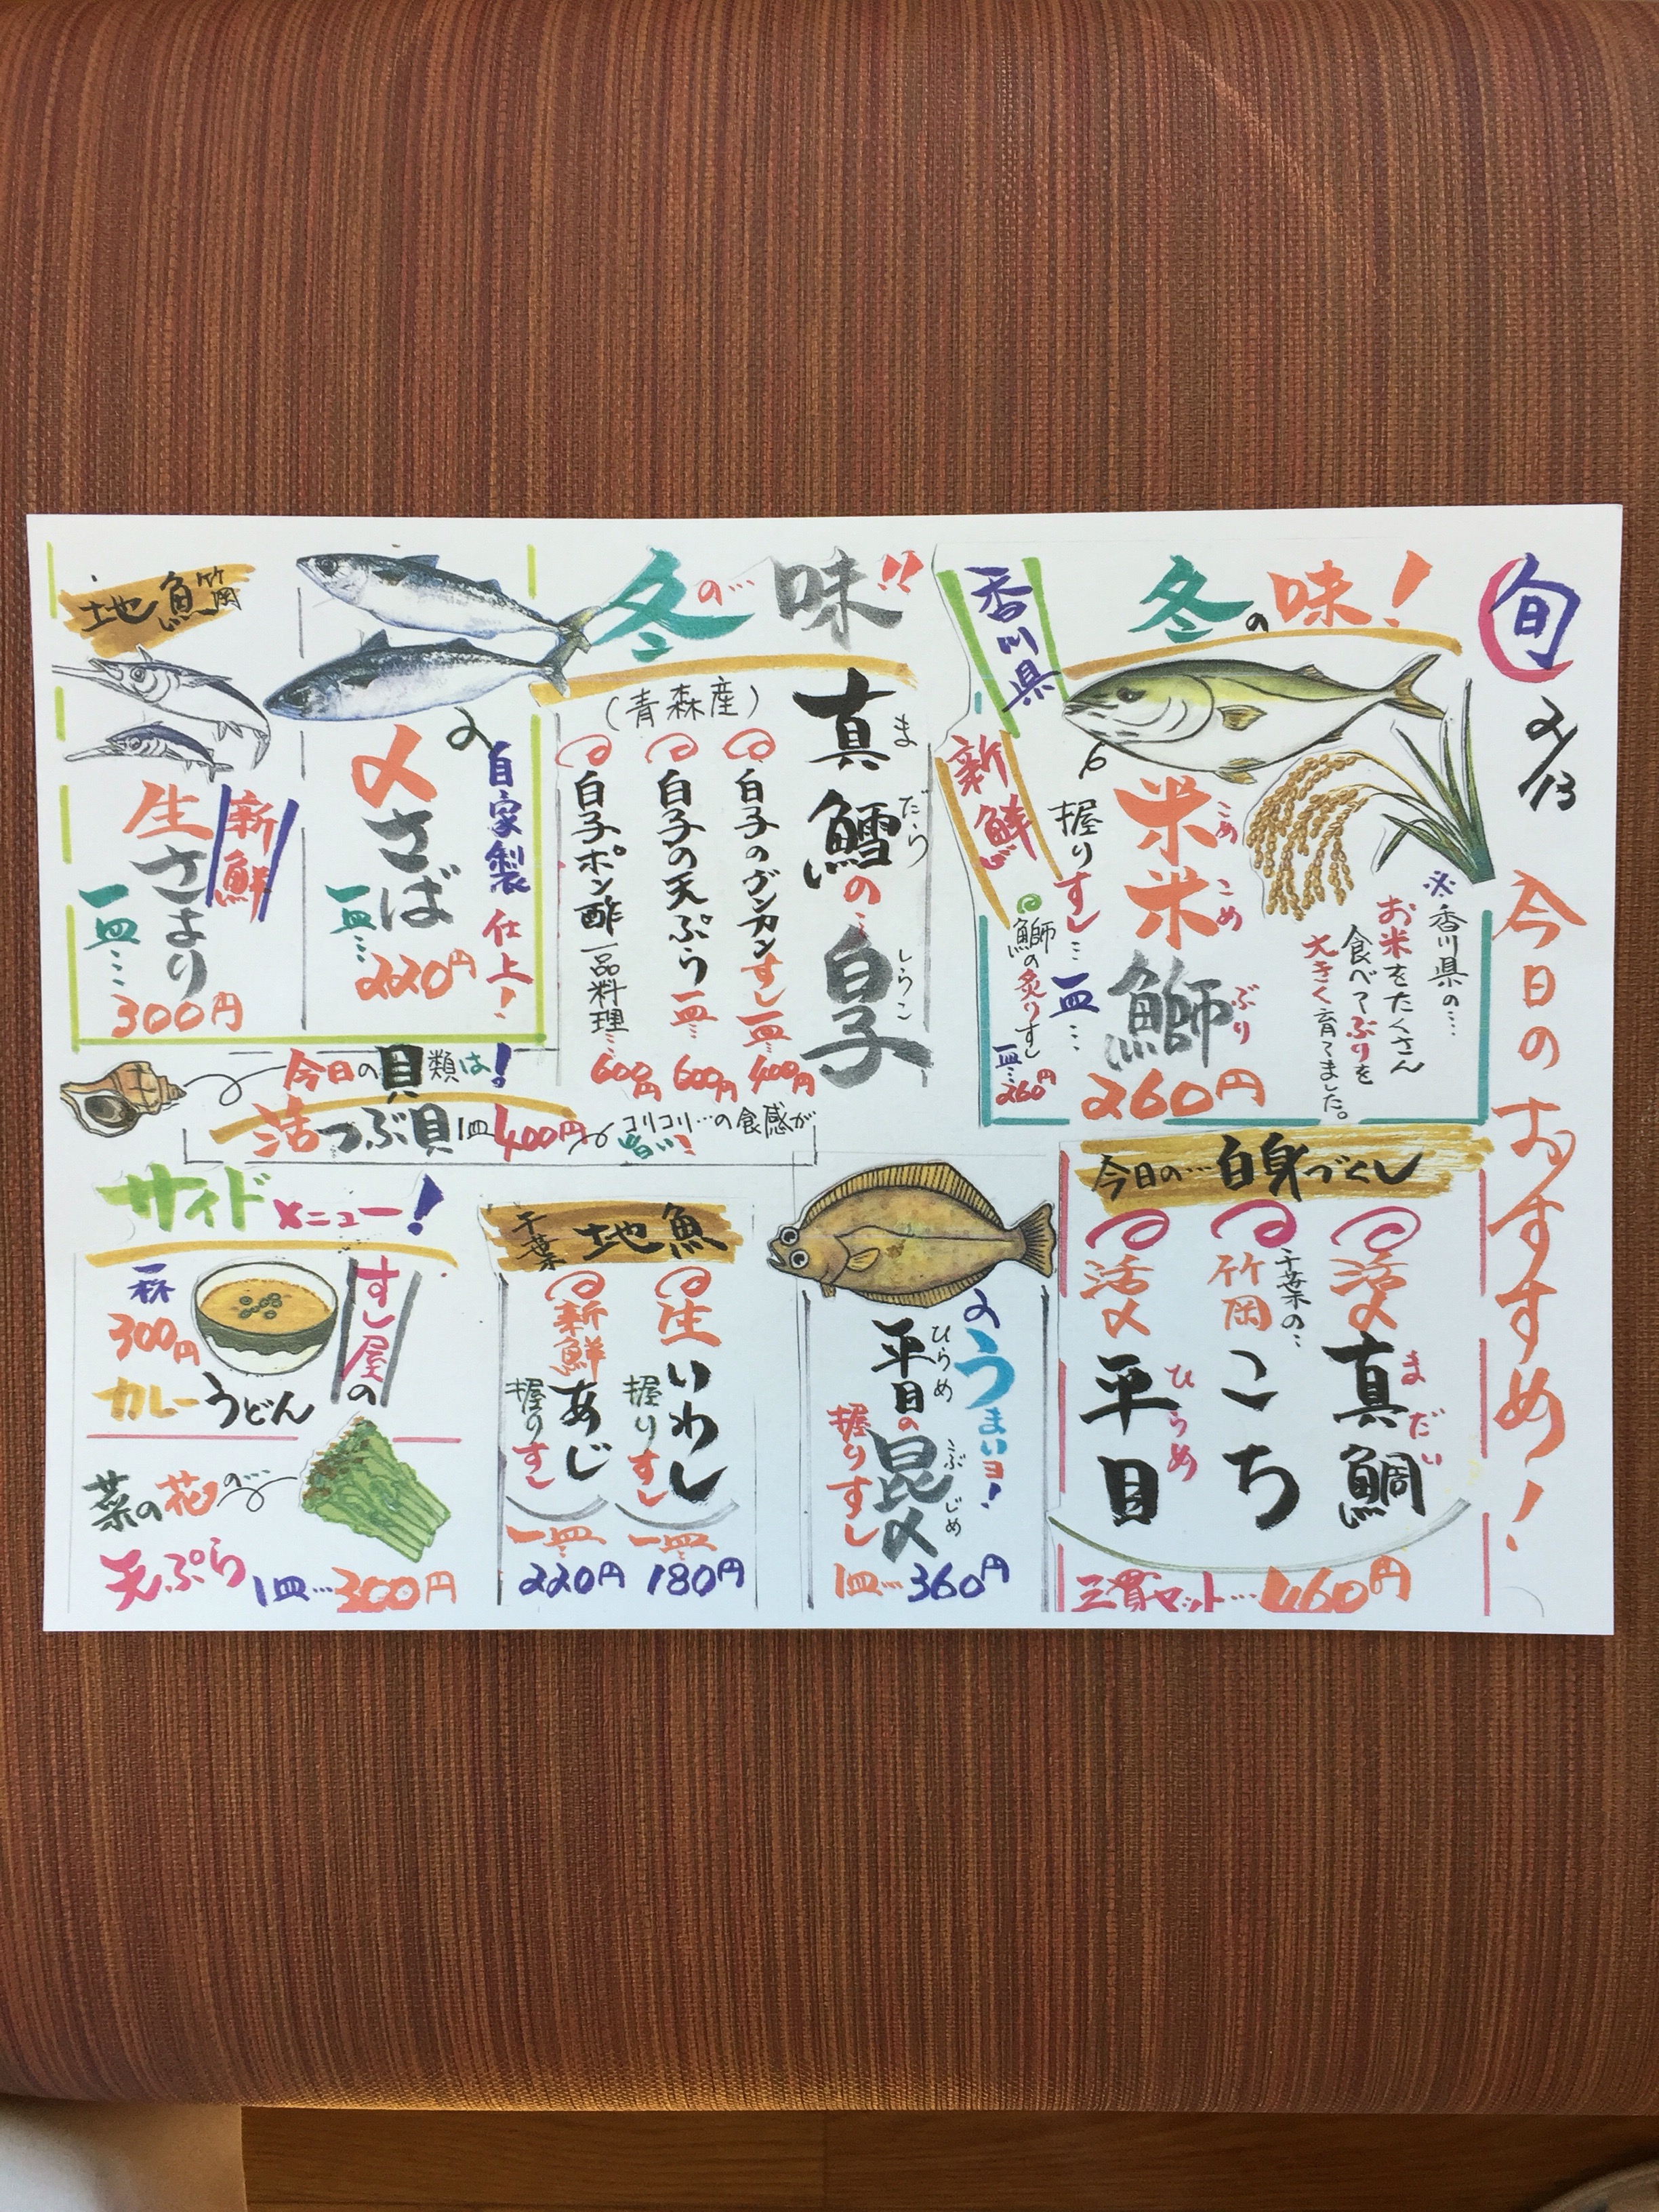 旬
2/13
今日のおすすめ!
冬の味!
香川県
新鮮
米米鰤
こめこめぶり
握りすし…一皿…
260円
鰤の炙りすし
一皿…260円
※香川県の…
お米をたくさん
食べてぶりを
大きく育てました。
冬の…味!!
真鱈の…白子
まだら
しらこ
(青森産)
白子のグンカンすし一皿…400円
白子の天ぷら一皿…600円
白子ポン酢一品料理…600円
自家製仕上!
〆さば
一皿…220円
地魚
竹岡
新鮮
生さより
一皿…300円
今日の貝類は!
活つぶ貝1皿400円
コリコリ…の食感が
旨い!
今日の…白身づくし
活〆真鯛
まだい
千葉の…
竹岡こち
活〆平目
ひらめ
三貫セット…460円
うまいヨ!
平目の昆〆
ひらめ
こぶじめ
握りすし
1皿…360円
千葉地魚
生いわし
握りすし
一皿…
180円
新鮮あじ
握りすし
一皿…
220円
サイドメニュー!
すし屋の
カレーうどん
一杯
300円
菜の花の…
天ぷら1皿…300円